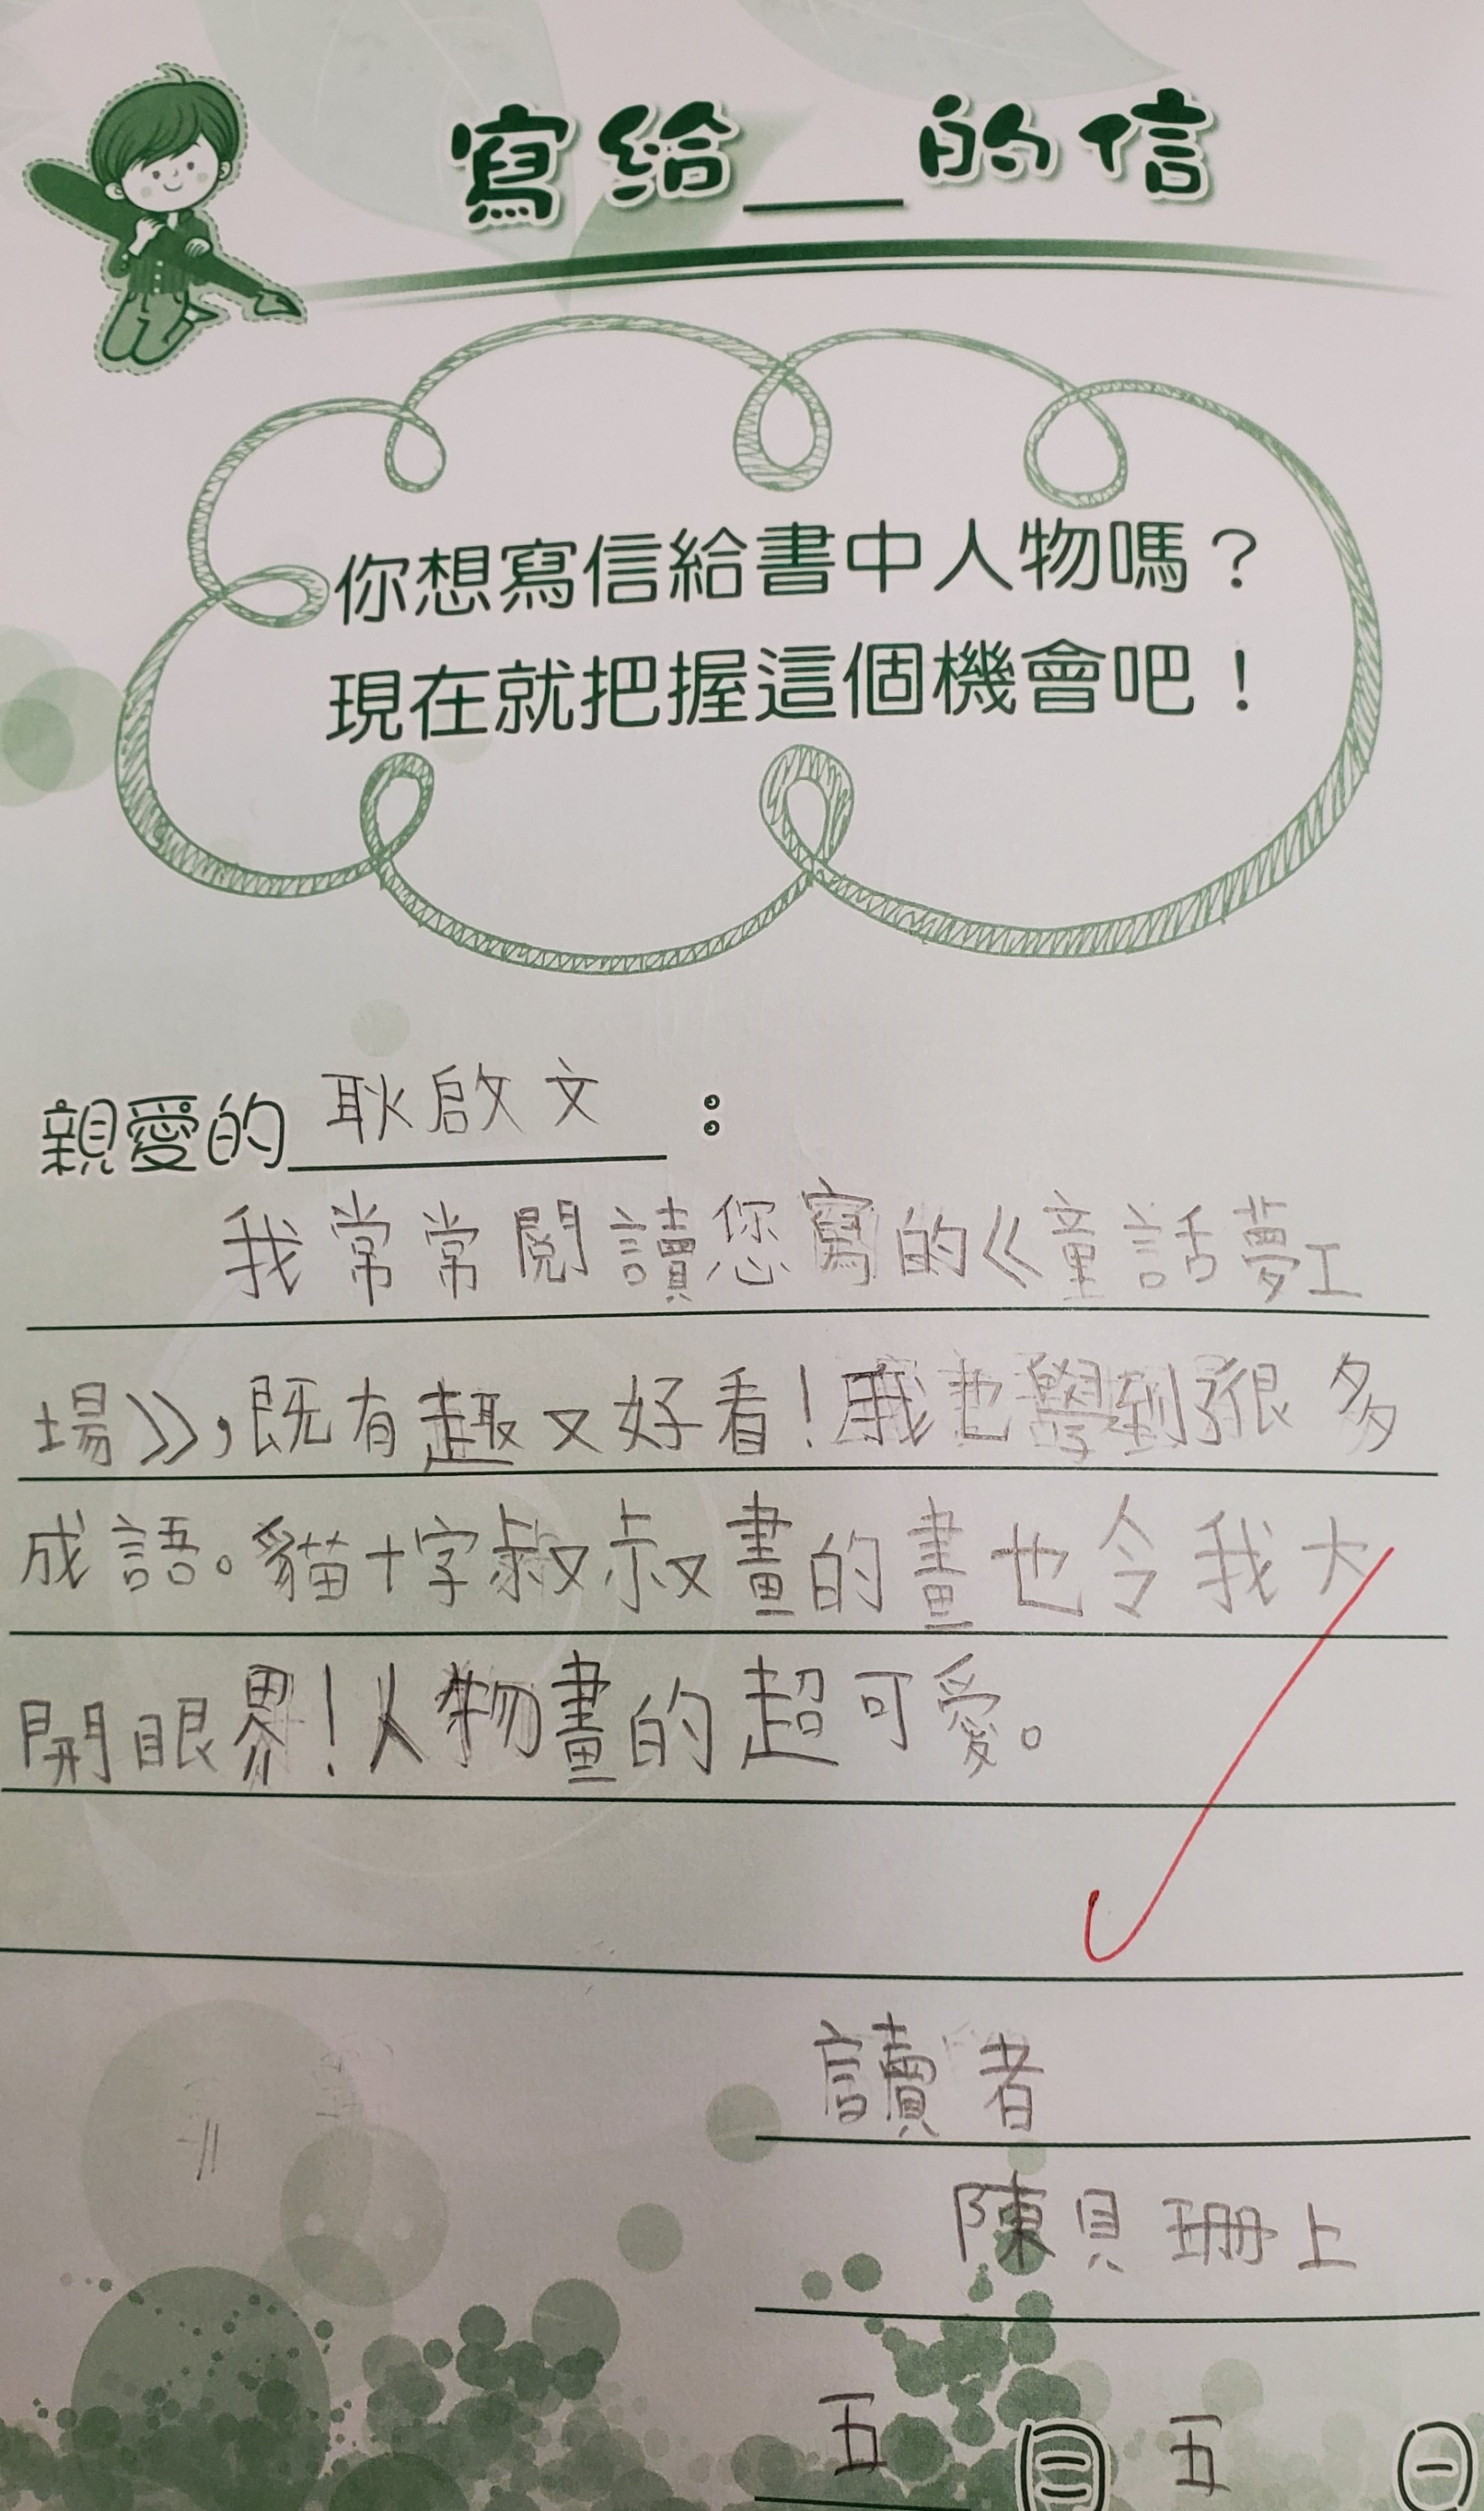 寫給＿的信
你想寫信給書中人物嗎？
現在就把握這個機會吧！
親愛的 耿啟文 ：
我常常閱讀您寫的《童話夢工
場》，既有趣又好看！我也學到了很多
成語。貓十字叔叔畫的畫也令我大
開眼界！人物畫的超可愛。
讀者
陳貝珊上
五月五日